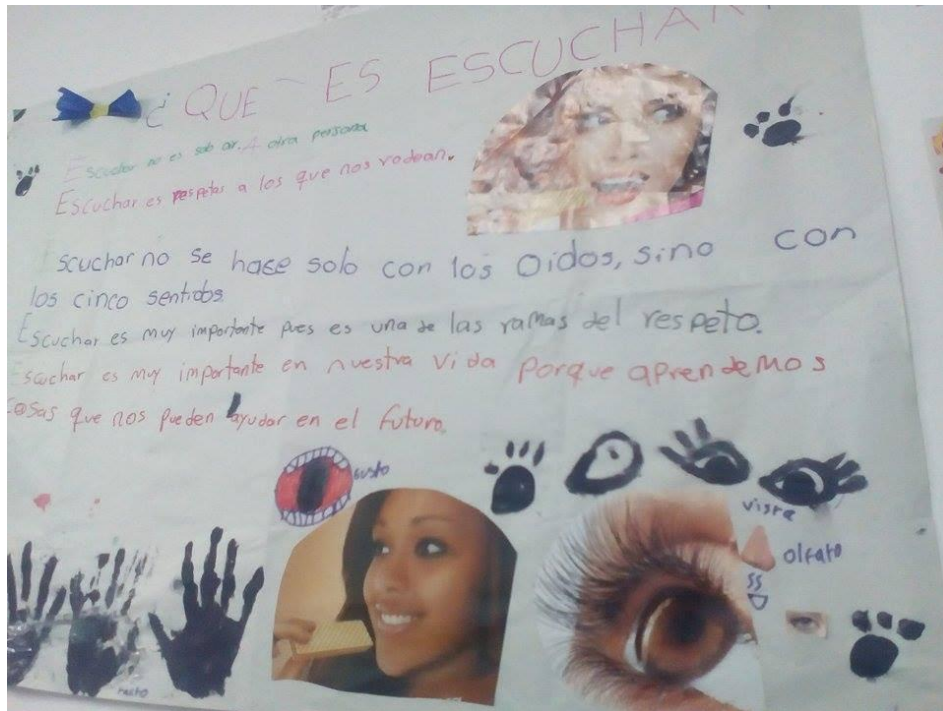 ¿QUE ES ESCUCHAR
Escuchar no es solo oir. A otra persona
Escuchar es respetar a los que nos rodean.
scuchar no se hase solo con los Oidos, sino con
los cinco sentidos
Escuchar es muy importante pues es una de las ramas del respeto.
Escuchar es muy importante en nuestra vida porque aprendemos
cosas que nos pueden ayudar en el futuro.
Gusto
vista
olfato
tacto